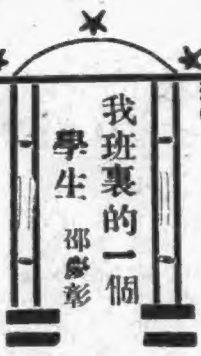 我班裏的一個
學生 邵彰